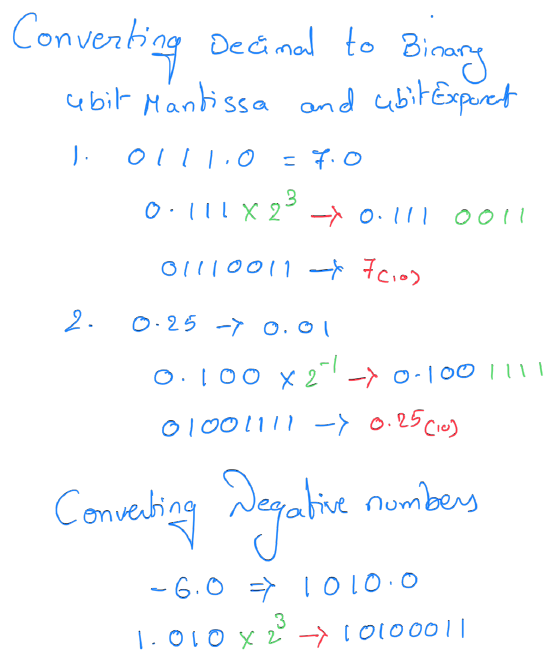 Converting Decimal to Binary
4bit Mantissa and 4bit Exponent
1. 0111.0 = 7.0
0.111 × 2³ → 0.111 0011
01110011 → 7(10)
2. 0.25 → 0.01
0.100 × 2⁻¹ → 0.100 1111
01001111 → 0.25(10)
Converting Negative numbers
-6.0 ⇒ 1010.0
1.010 × 2³ → 10100011